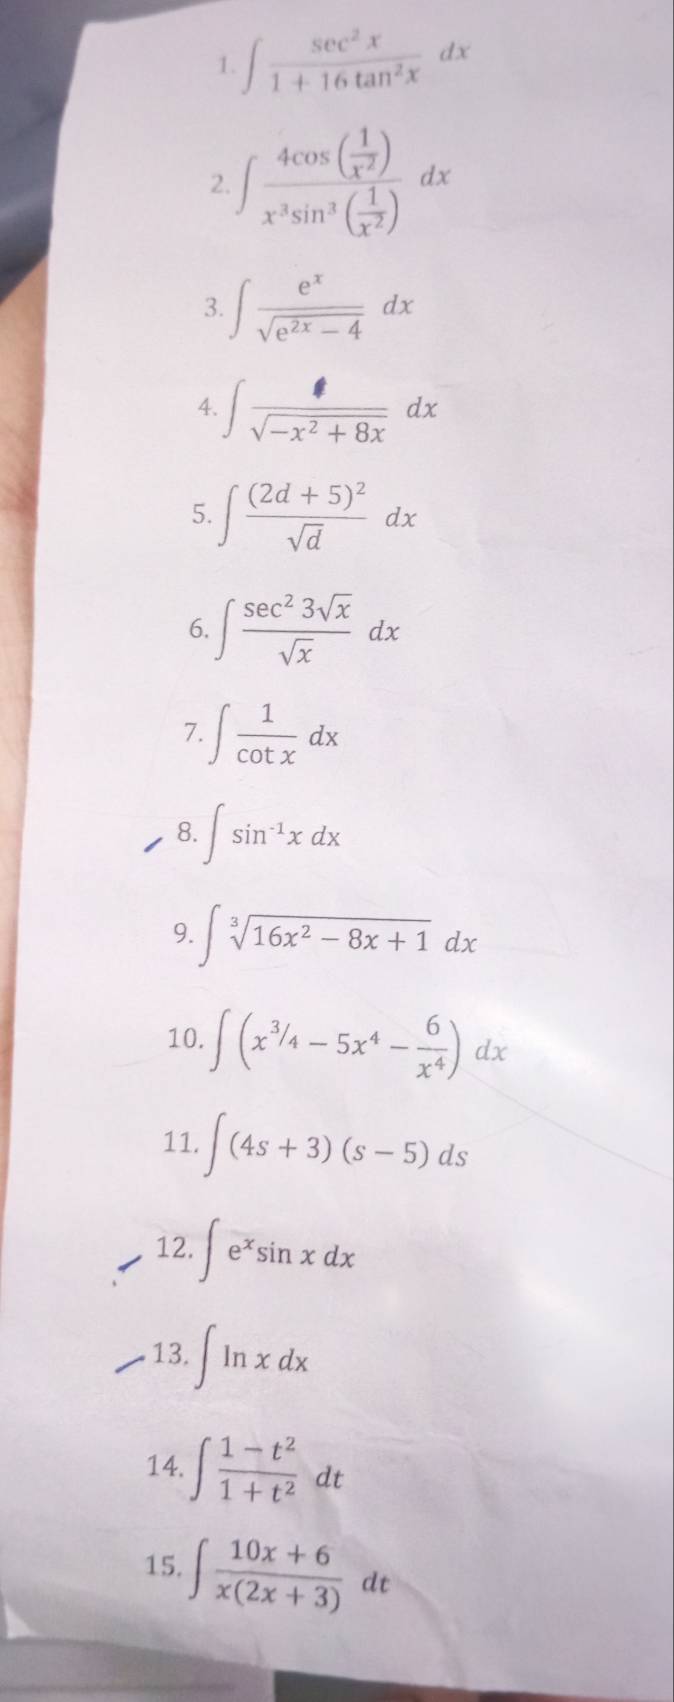 1. ∫ sec² x / (1 + 16 tan²x) dx
2. ∫ 4cos (1/x²) / (x³sin³ (1/x²)) dx
3. ∫ eˣ / √(e²ˣ − 4) dx
4. ∫ / √(−x² + 8x) dx
5. ∫ (2d + 5)² / √d dx
6. ∫ sec² 3√x / √x dx
7. ∫ 1 / cot x dx
8. ∫ sin⁻¹x dx
9. ∫ ∛(16x² − 8x + 1) dx
10. ∫ (x^3/4 − 5x⁴ − 6/x⁴) dx
11. ∫ (4s + 3) (s − 5) ds
12. ∫ eˣsin x dx
13. ∫ ln x dx
14. ∫ (1 − t²) / (1 + t²) dt
15. ∫ (10x + 6) / (x(2x + 3)) dt